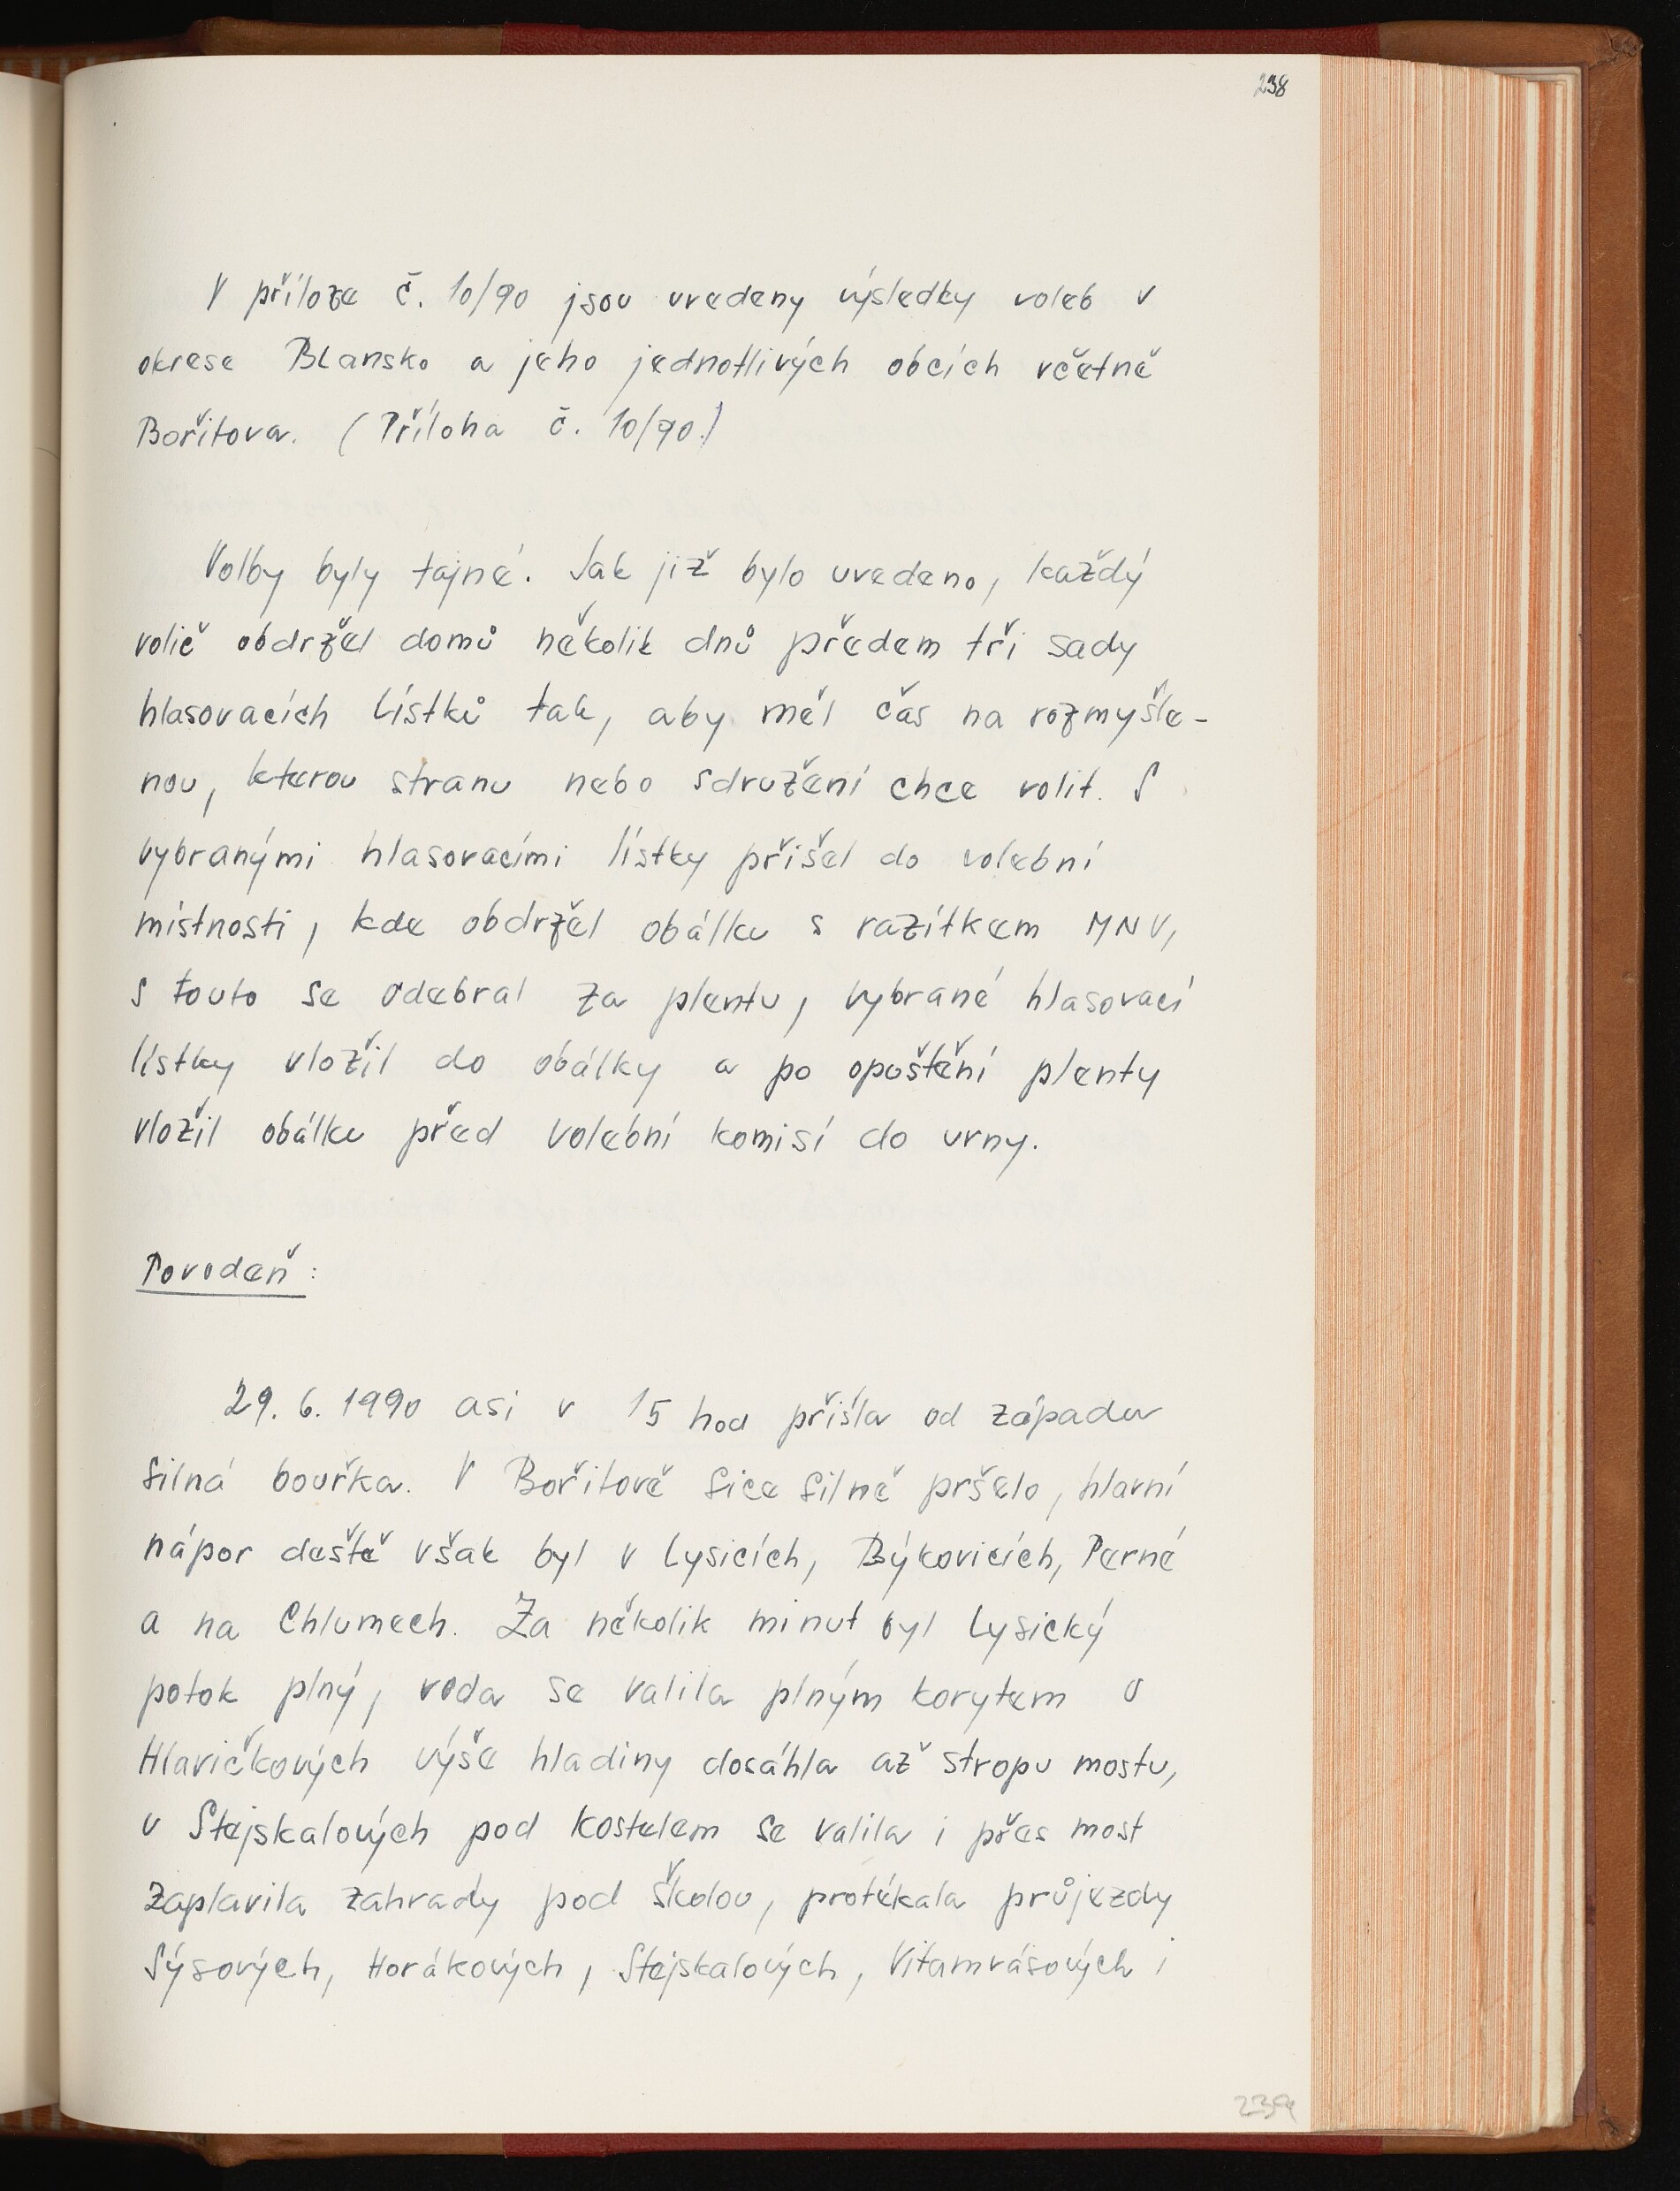 238
V příloze č. 10/90 jsou uvedeny výsledky voleb v
okrese Blansko a jeho jednotlivých obcích včetně
Bořitova. (Příloha č. 10/90.)
Volby byly tajné. Jak již bylo uvedeno, každý
volič obdržel domů několik dnů předem tři sady
hlasovacích lístků tak, aby měl čas na rozmyšle-
nou, kterou stranu nebo sdružení chce volit. S
vybranými hlasovacími lístky přišel do volební
místnosti, kde obdržel obálku s razítkem MNV,
s touto se odebral za plentu, vybrané hlasovací
lístky vložil do obálky a po opuštění plenty
vložil obálku před volební komisí do urny.
Povodeň:
29. 6. 1990 asi v 15 hod přišla od západu
silná bouřka. V Bořitově sice silně pršelo, hlavní
nápor deště však byl v Lysicích, Býkovicích, Perné
a na Chlumech. Za několik minut byl Lysický
potok plný, voda se valila plným korytem u
Hlavičkových výše hladiny dosáhla až stropu mostu,
u Stejskalových pod kostelem se valila i přes most
zaplavila zahrady pod školou, protékala průjezdy
Sýsových, Horákových, Stejskalových, Vítamvásových i
239